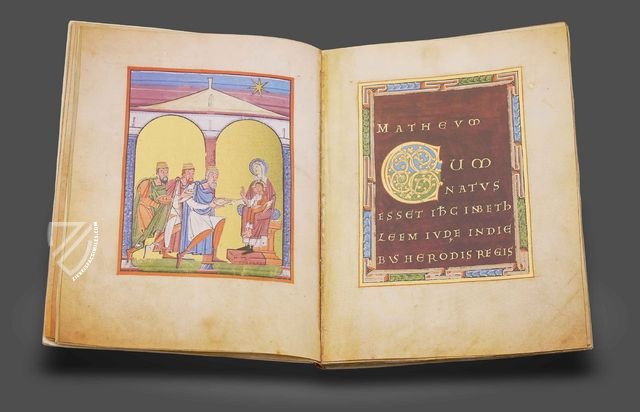 MATHEUM
CUM
NATUS
ESSET IHC IN BETH
LEEM IUDĘ IN DIE
BUS HERODIS REGIS
ZIEREISFACSIMILES.COM